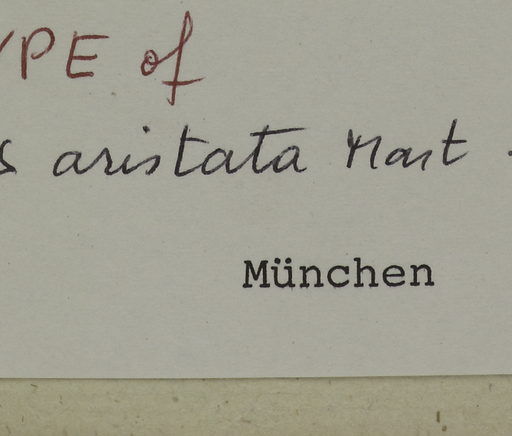 YPE of
s aristata Mart.
München